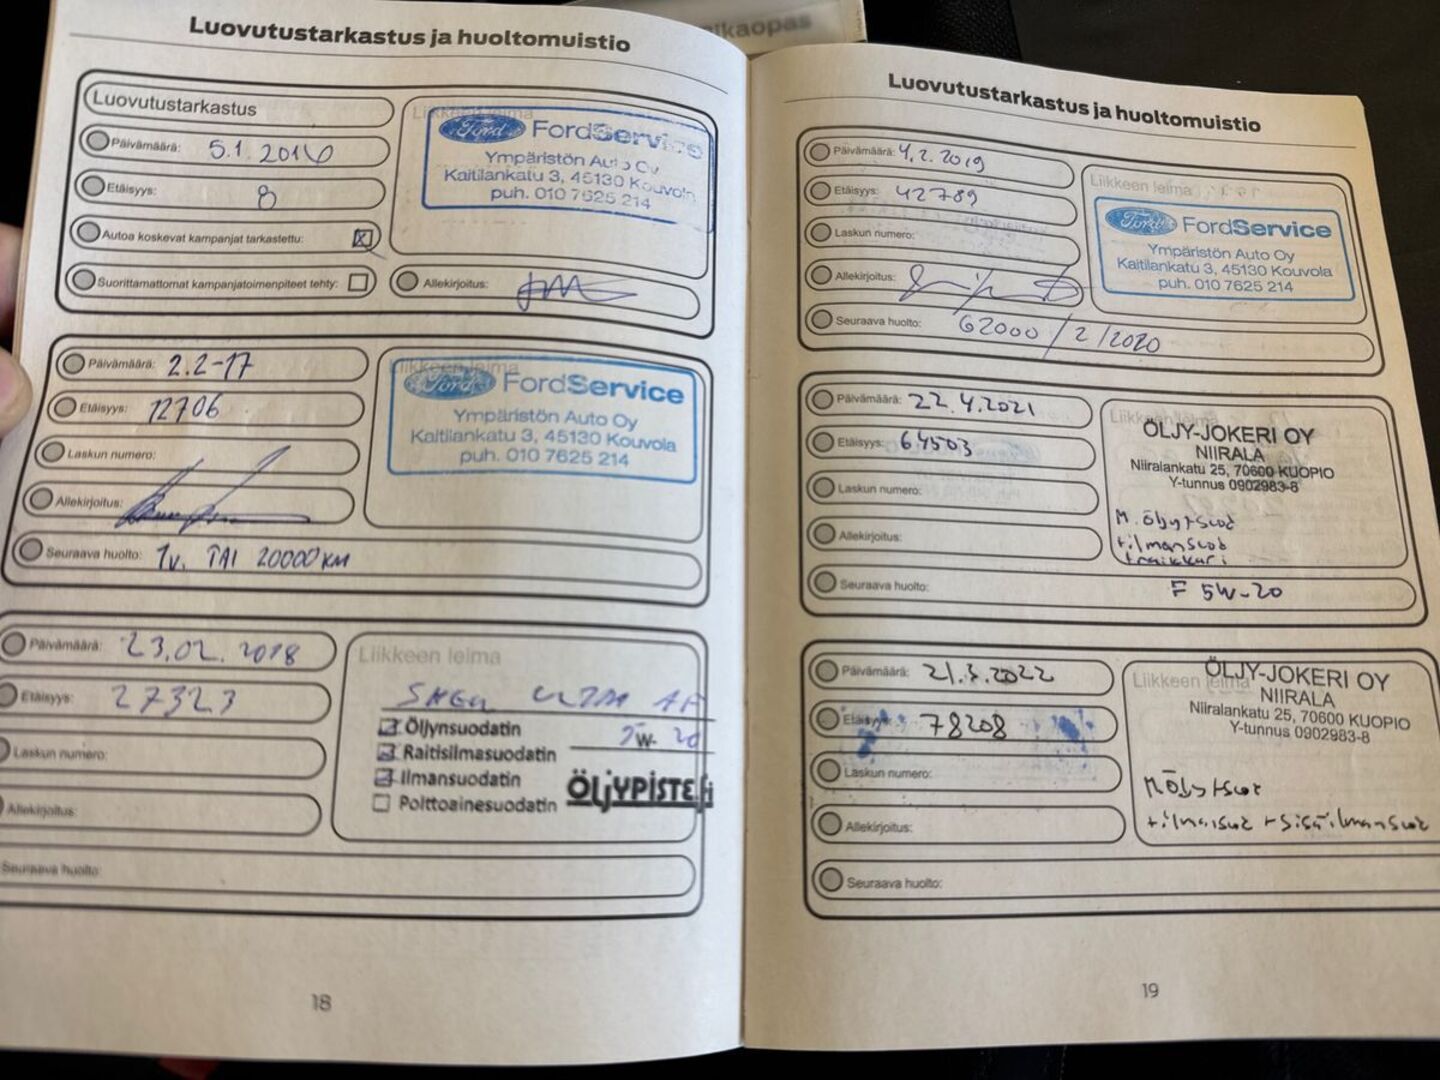 Luovutustarkastus ja huoltomuistio
Luovutustarkastus
Päivämäärä: 5.1.2016
Etäisyys: 8
Autoa koskevat kampanjat tarkastettu:
Suorittamattomat kampanjatoimenpiteet tehty:
Liikkeen leima
Ford FordService
Ympäristön Auto Oy
Kaitilankatu 3, 45130 Kouvola
puh. 010 7625 214
Allekirjoitus:
Päivämäärä: 2.2-17
Etäisyys: 12706
Laskun numero:
Allekirjoitus:
Seuraava huolto: 1v. TAI 20000 KM
Liikkeen leima
Ford FordService
Ympäristön Auto Oy
Kaitilankatu 3, 45130 Kouvola
puh. 010 7625 214
Päivämäärä: 23.02.2018
Etäisyys: 27323
Laskun numero:
Allekirjoitus:
Seuraava huolto:
Liikkeen leima
Öljynsuodatin 5W-20
Raitisilmasuodatin
Ilmansuodatin
Polttoainesuodatin
ÖLJYPISTE.fi
18
ikaopas
Luovutustarkastus ja huoltomuistio
Päivämäärä: 4.2.2019
Etäisyys: 42789
Laskun numero:
Allekirjoitus:
Seuraava huolto: 62000/2/2020
Liikkeen leima
Ford FordService
Ympäristön Auto Oy
Kaitilankatu 3, 45130 Kouvola
puh. 010 7625 214
Päivämäärä: 22.4.2021
Etäisyys: 64503
Laskun numero:
Allekirjoitus:
Seuraava huolto:
Liikkeen leima
ÖLJY-JOKERI OY
NIIRALA
Niiralankatu 25, 70600 KUOPIO
Y-tunnus 0902983-8
M.öljy+suod
+ilmansuod
F 5W-20
Päivämäärä: 21.3.2022
Etäisyys: 78208
Laskun numero:
Allekirjoitus:
Seuraava huolto:
Liikkeen leima
ÖLJY-JOKERI OY
NIIRALA
Niiralankatu 25, 70600 KUOPIO
Y-tunnus 0902983-8
MÖljy+suod
+ilmansuod +sisäilmansuod
19